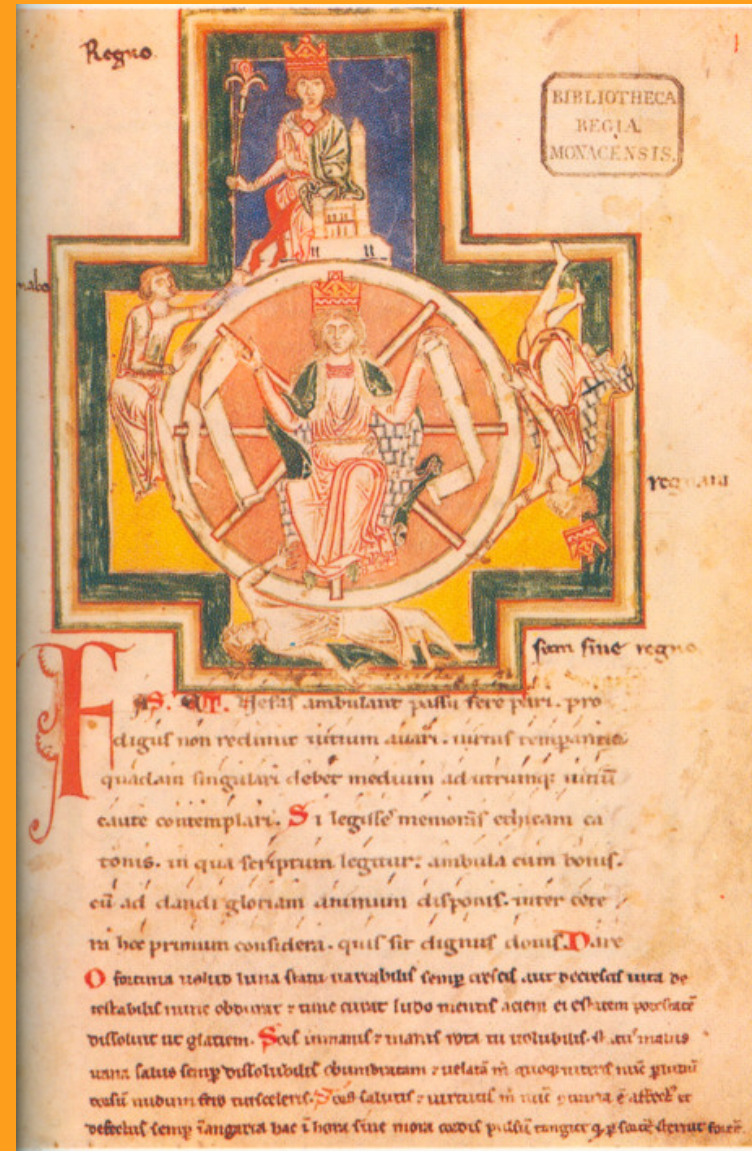 Regno
BIBLIOTHECA
REGIA
MONACENSIS.
nabo
regnaui
sum sine regno
FAS. ET. Nefas ambulant passu fere pari. pro
digus non redimit uitium auari. uirtus temperantia
quadam singulari debet medium ad utrumq; uitiū
caute contemplari. Si legisse memoris ethicam ca
tonis. in qua scriptum legitur: ambula cum bonis.
cū ad dandi gloriam animum disponis. inter cete
ra hoc primum considera. quis sit dignus donis. Dare
O fortuna uelud luna statu uariabilis semp crescis aut decrescis uita de
testabilis nunc obdurat & tunc curat ludo mentis aciem egestatem potestatē
dissoluit ut glaciem. Sors inmanis & inanis rota tu uolubilis status malus
uana salus semp dissolubilis obumbratam & uelatā m quoq; niteris nūc p
dorsū nudum fero tui sceleris. Sors salutis & uirtutis m nūc & aria ē affect et
defectus semp ī angaria hac ī hora sine mora cordis pulsū tangite q p sortē sternit fortē